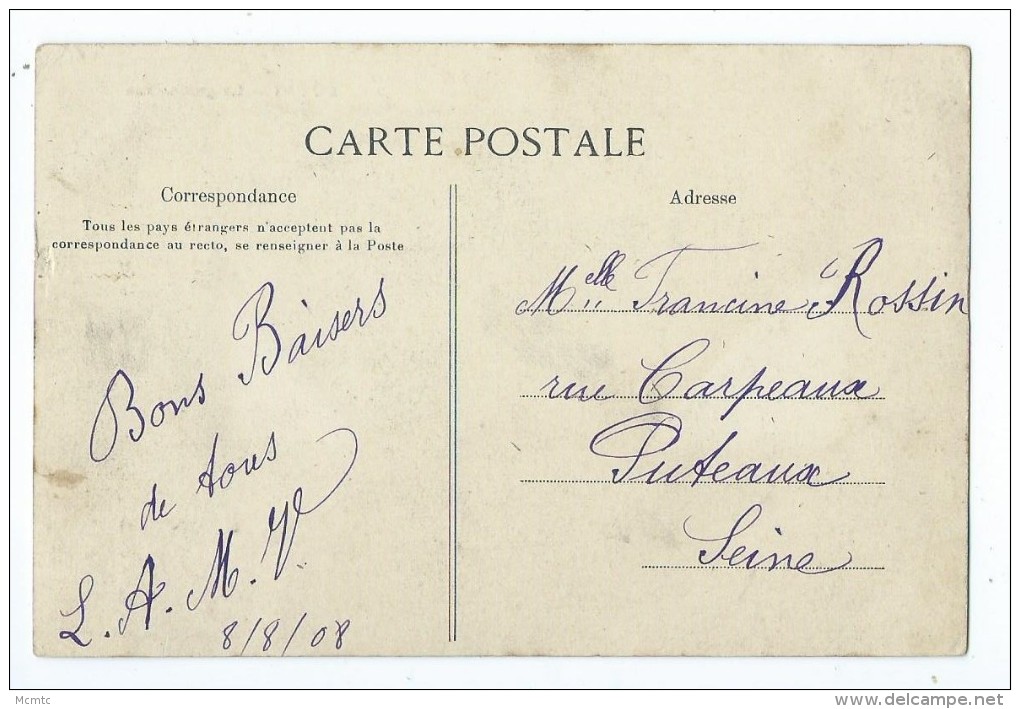 CARTE POSTALE
Correspondance
Tous les pays étrangers n'acceptent pas la
correspondance au recto, se renseigner à la Poste
Bons Baisers
de tous
L. A. M. V
8/8/08
Adresse
Melle Francine Rossin
rue Carpeaux
Puteaux
Seine
Mcmtc
www.delcampe.net